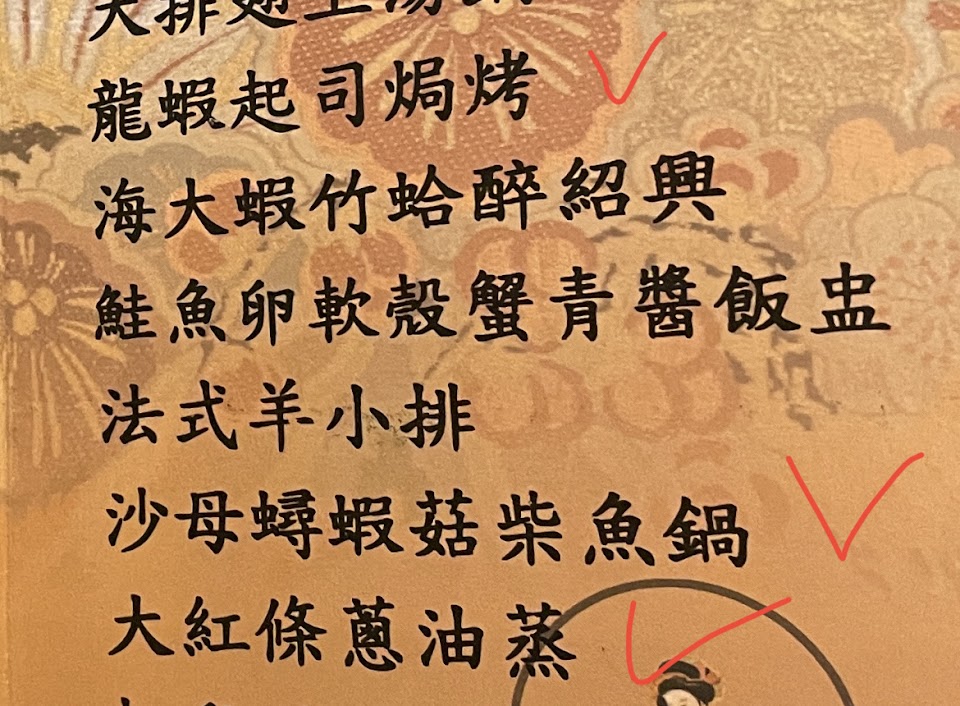 大排翅上湯鍋
龍蝦起司焗烤
海大蝦竹蛤醉紹興
鮭魚卵軟殼蟹青醬飯盅
法式羊小排
沙母蟳蝦菇柴魚鍋
大紅條蔥油蒸